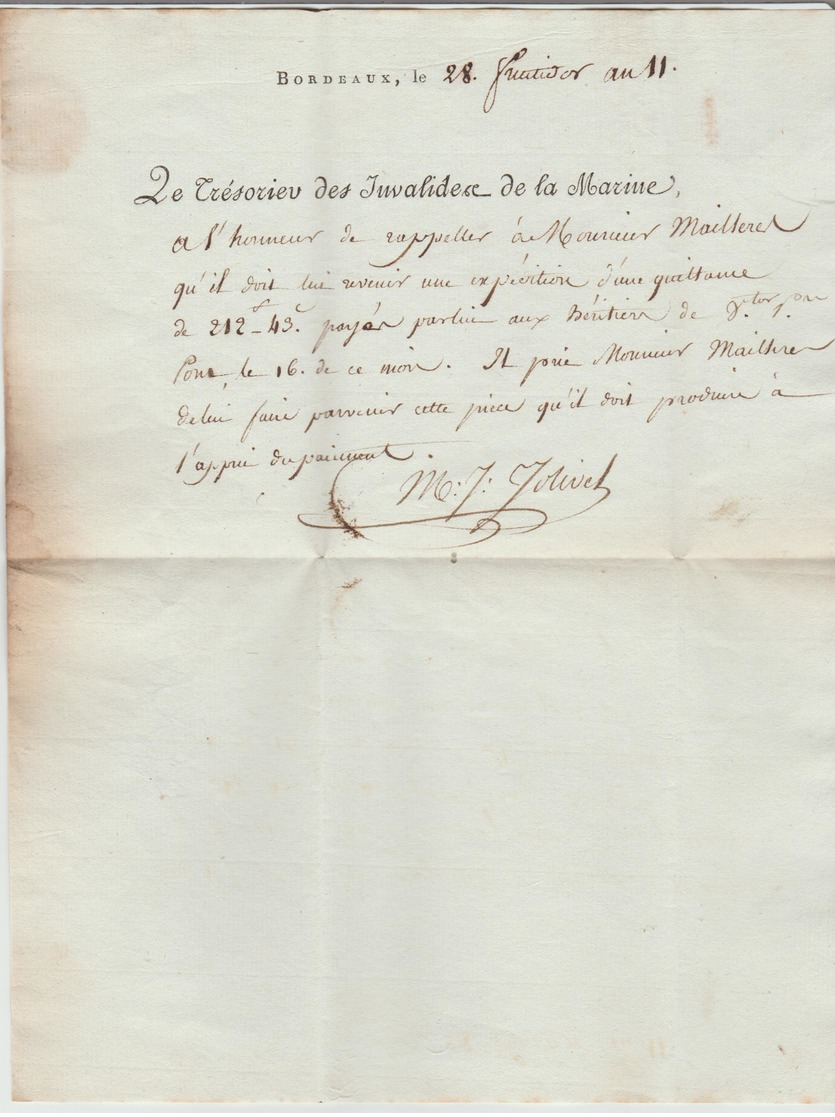 BORDEAUX, le 28. fructidor an 11.
Le Trésorier des Invalides de la Marine,
a l'honneur de rappeller à Monsieur Mailleres
qu'il doit lui revenir une expédition d'une quittance
de 212 f - 43 c. payés par lui aux héritiers de
Pons le 16. de ce mois. Il prie Monsieur Mailleres
de lui faire parvenir cette pièce qu'il doit produire à
l'appui du paiement.
M: J: Jolivet